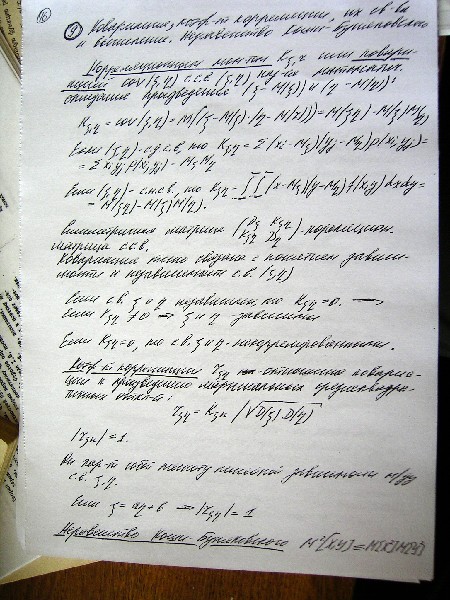 16
9 Ковариация, коэф-т корреляции, их св-ва
и вычисление. Неравенство Коши-Буняковского
Корреляционным мом-том Kξη или ковари-
ацией cov(ξ,η) с.с.в (ξ,η) наз-ся математич.
ожидание произведения (ξ-M(ξ)) и (η-M(η)):
Kξη = cov(ξ,η) = M((ξ-M(ξ))·(η-M(η))) = M(ξη)-M(ξ)M(η)
Если (ξ,η) - с.д.с.в, то Kξη = Σ(xi-Mξ)(yj-Mη)p(xi yj) =
= Σ xi yj p(xi yj) - Mξ Mη
Если (ξ,η) - с.н.с.в, то Kξη = ∫∫(x-Mξ)(y-Mη)f(x,y)dxdy =
= M(ξη)-M(ξ)M(η).
Симметричная матрица (Dξ Kξη
Kξη Dη) - корреляцион.
матрица с.с.в.
Ковариация тесно связана с понятием зависи-
мости и независимости с.в. (ξ,η)
Если с.в. ξ и η независимы, то Kξη=0. →
Если Kξη ≠ 0 ⇒ ξ и η - зависимы
Если Kξη=0, то с.в. ξ и η - некоррелированные.
Коэф-т корреляции rξη - отношение ковариа-
ции к произведению средноквадра-
тичных :
rξη = Kξη / √D(ξ) D(η)
|rξη| = 1.
собой линейной зависимости м/ду
с.в. ξ,η.
Если ξ = aη+b ⇒ |rξη| = 1
Неравенство Коши-Буняковского M²[XY] = M[X]M[Y]